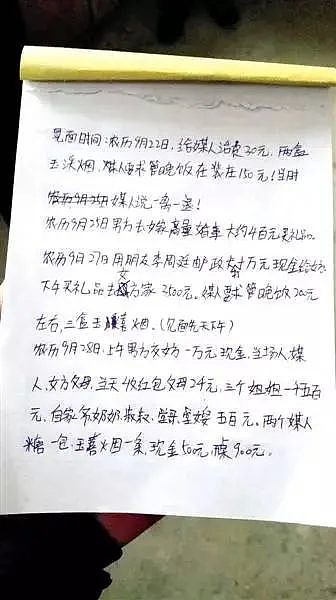 见面时间:农历9月22日,给媒人话费30元,两盒
玉溪烟,媒人要求管晚饭在 庄150元!当时
媒人说一离一退!
农历9月25日男方去 家商量婚事大约4百元买礼品。
农历9月27日用朋友李同廷邮政卡万元现金给女方
下午买礼品去女方家3500元。媒人要求管晚饭20元
左右,三盒玉喜烟。(见面先天下午)
农历9月28日上午男方交女方一万元现金,当场人媒
人,女方父母,当天收红包父母24元,三个姐姐一千五百
元,自家爷奶奶,叔叔, 五百元。两个媒人
糖一包,玉喜烟一条,现金50元, 900元。